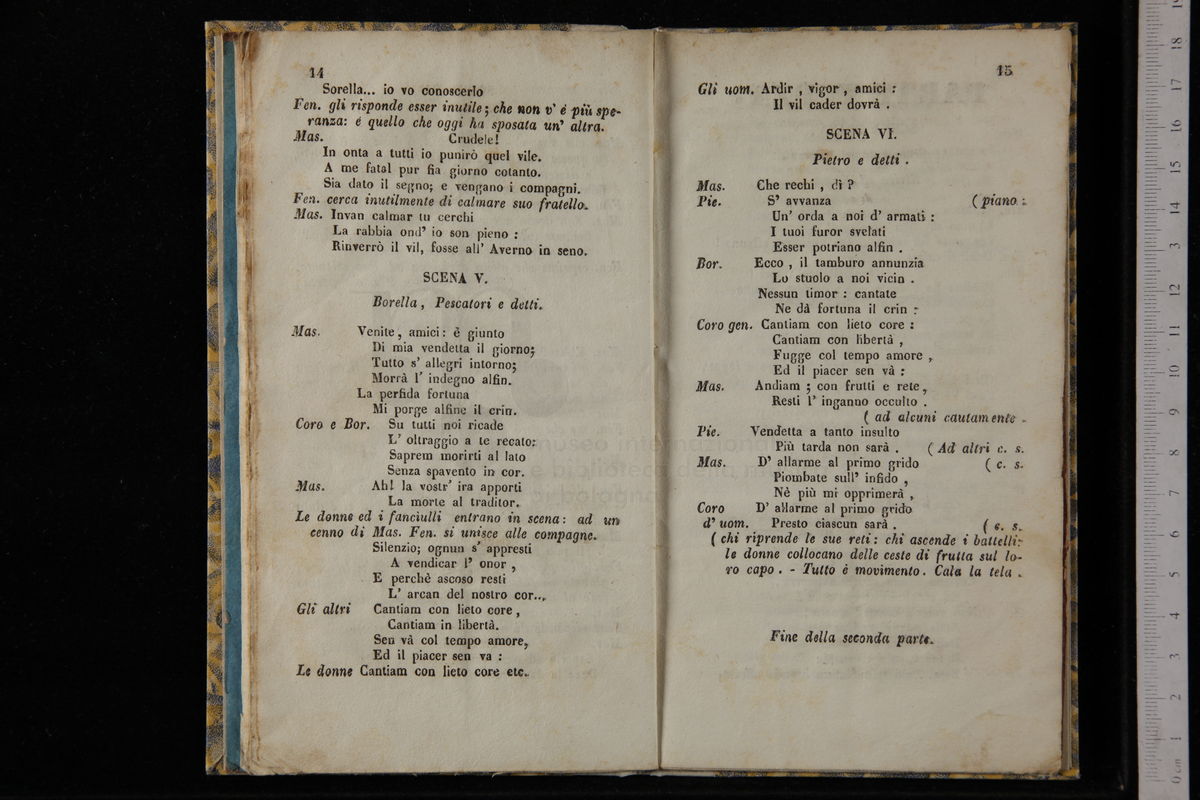 14
Sorella... io vo conoscerlo
Fen. gli risponde esser inutile; che non v' é più spe-
ranza: é quello che oggi ha sposata un' altra.
Mas. Crudele!
In onta a tutti io punirò quel vile.
A me fatal pur fia giorno cotanto.
Sia dato il segno; e vengano i compagni.
Fen. cerca inutilmente di calmare suo fratello.
Mas. Invan calmar tu cerchi
La rabbia ond' io son pieno :
Rinverrò il vil, fosse all' Averno in seno.
SCENA V.
Borella, Pescatori e detti.
Mas. Venite, amici: è giunto
Di mia vendetta il giorno;
Tutto s' allegri intorno;
Morrà l' indegno alfin.
La perfida fortuna
Mi porge alfine il crin.
Coro e Bor. Su tutti noi ricade
L' oltraggio a te recato:
Saprem morirti al lato
Senza spavento in cor.
Mas. Ah! la vostr' ira apporti
La morte al traditor.
Le donne ed i fanciulli entrano in scena: ad un
cenno di Mas. Fen. si unisce alle compagne.
Silenzio; ognun s' appresti
A vendicar l' onor ,
E perchè ascoso resti
L' arcan del nostro cor...
Gli altri Cantiam con lieto core ,
Cantiam in libertà.
Sen và col tempo amore,
Ed il piacer sen va :
Le donne Cantiam con lieto core etc.
15
Gli uom. Ardir , vigor , amici :
Il vil cader dovrà .
SCENA VI.
Pietro e detti .
Mas. Che rechi , dì ?
Pie. S' avvanza ( piano :
Un' orda a noi d' armati :
I tuoi furor svelati
Esser potriano alfin .
Bor. Ecco , il tamburo annunzia
Lo stuolo a noi vicin .
Nessun timor : cantate
Ne dà fortuna il crin :
Coro gen. Cantiam con lieto core :
Cantiam con libertà ,
Fugge col tempo amore ,
Ed il piacer sen và :
Mas. Andiam ; con frutti e rete,
Resti l' inganno occulto .
( ad alcuni cautamente .
Pie. Vendetta a tanto insulto
Più tarda non sarà . ( Ad altri c. s.
Mas. D' allarme al primo grido ( c. s.
Piombate sull' infido ,
Nè più mi opprimerà ,
Coro D' allarme al primo grido
d' uom. Presto ciascun sarà . ( c. s.
( chi riprende le sue reti: chi ascende i battelli:
le donne collocano delle ceste di frutta sul lo-
ro capo . - Tutto è movimento. Cala la tela .
Fine della seconda parte.
museo internazionale
e biblioteca della m
di bologna
0 cm 1 2 3 4 5 6 7 8 9 10 11 12 13 14 15 16 17 18 19